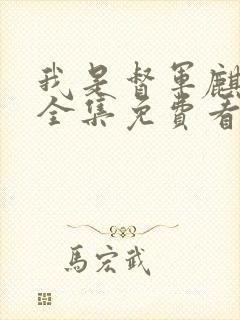 我是督军麒
全集免费看
馬宏武